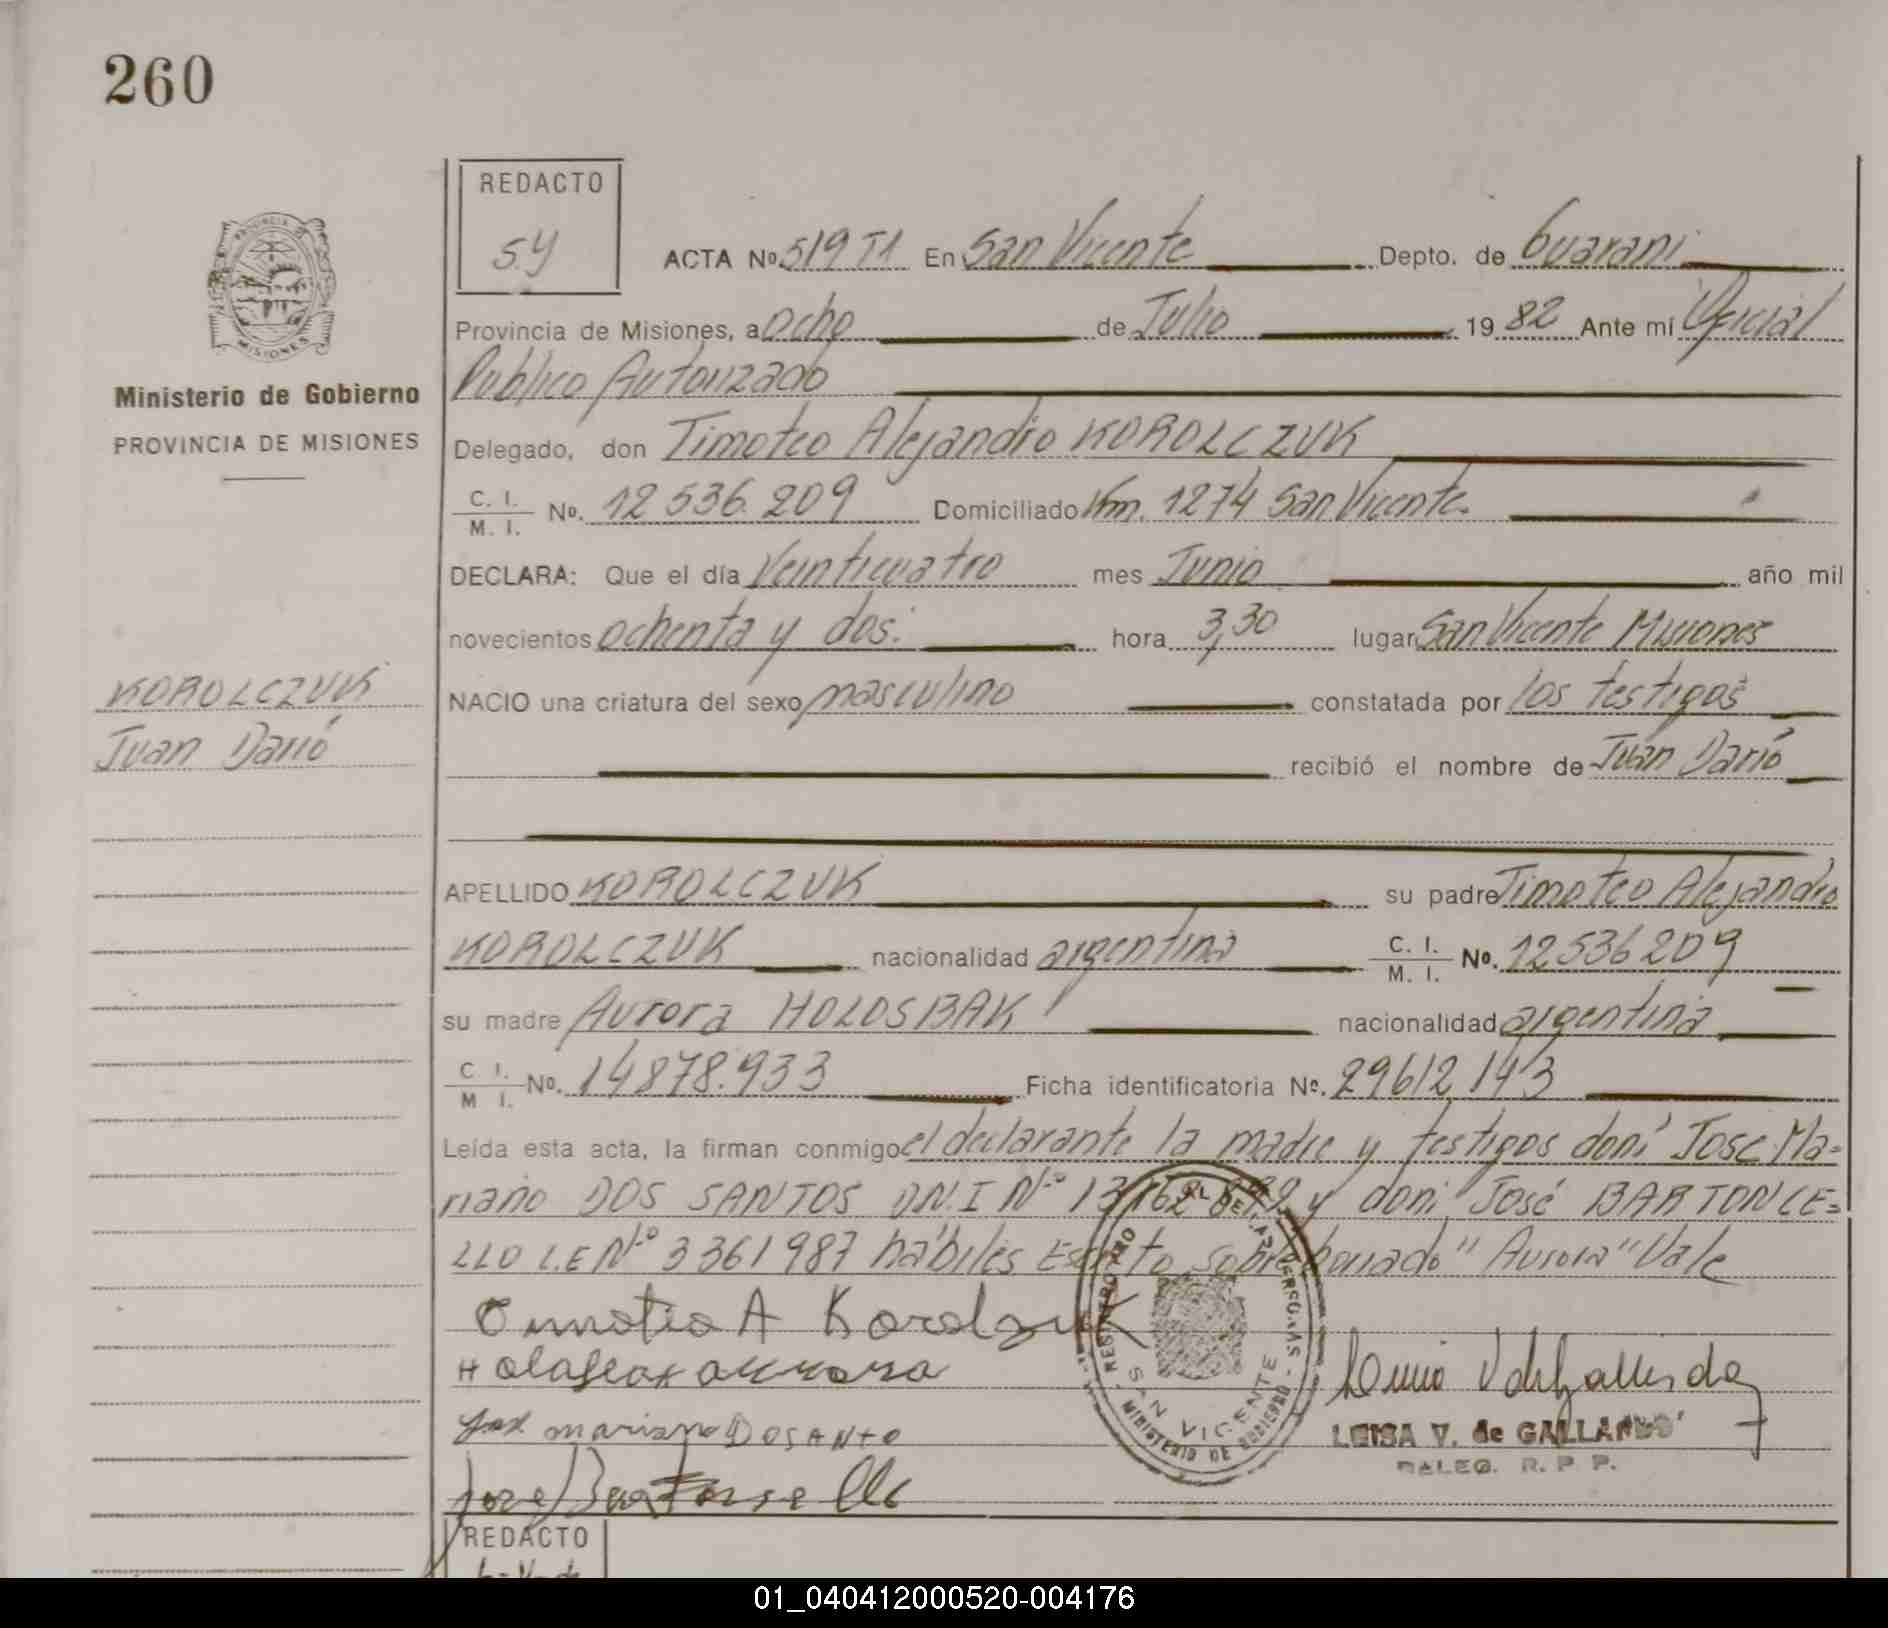 260
REDACTO
S.Y
ACTA Nº 519 T1 En San Vicente Depto. de Guarani
Provincia de Misiones, a ocho de Julio 19 82 Ante mí Oficial
Publico Autorizado
Ministerio de Gobierno
PROVINCIA DE MISIONES
Delegado, don Timoteo Alejandro KOROLCZUK
C. I. M. I. No. 12.536.209 Domiciliado Km. 1274 San Vicente.
DECLARA: Que el día Veinticuatro mes Junio año mil
novecientos ochenta y dos. hora 3,30 lugar San Vicente Misiones
KOROLCZUK
Juan Darío
NACIO una criatura del sexo masculino constatada por los testigos
recibió el nombre de Juan Darío
APELLIDO KOROLCZUK su padre Timoteo Alejandro
KOROLCZUK nacionalidad argentina C. I. M. I. No. 12536209
su madre Aurora HOLOSBAK nacionalidad argentina
C I. M I. No. 14878.933 Ficha identificatoria Nº. 29612143
Leída esta acta, la firman conmigo el declarante la madre y testigos don: José Ma=
riano DOS SANTOS D.N.I Nº y don: José BARTONCE=
LLO L.E Nº 3361987 hábiles Escrito sobreborrado "Aurora" Vale
A
mariano DOSANTO
José
REGISTRO PROVINCIAL DE LAS PERSONAS
SAN VICENTE
MINISTERIO DE GOBIERNO
LUISA V. de GALLARDO
DALEG. R. P P.
REDACTO
01_040412000520-004176